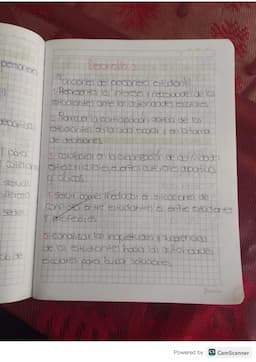 personero
Desarrollo
Funciones del personero estudiantil
1. Representa los intereses y necesidades de los
estudiantes ante las autoridades escolares.
2. Promueve la participación activa de los
estudiantes en la vida escolar y en la toma
de decisiones.
3. colaborar en la organización de actividades
y culturales.
4. Servir como mediador en situaciones de
conflictos entre estudiantes o entre estudiantes
y profesores.
5. canalizar las inquietudes y sugerencias
de los estudiantes hacia las autoridades
escolares para buscar soluciones.
Powered by CS CamScanner